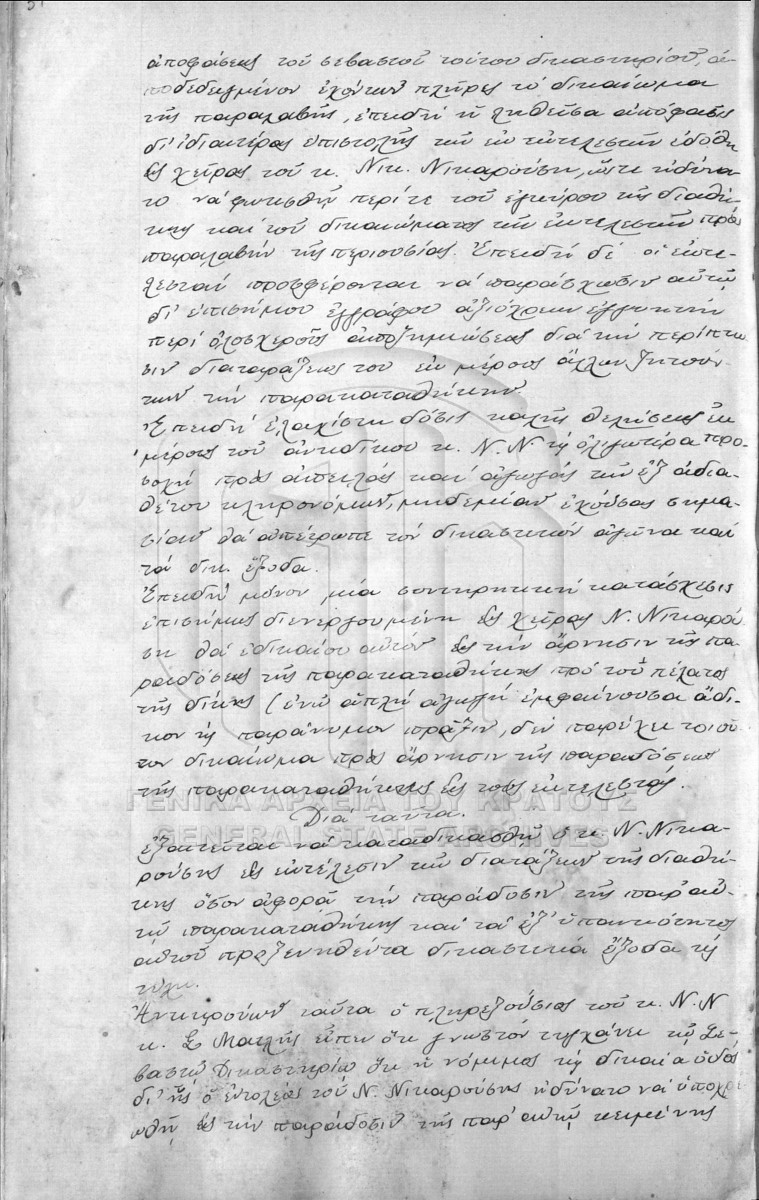 ἀποφάσεως τοῦ σεβαστοῦ τούτου δικαστηρίου, ἀ-
ποδεδειγμένον ἐχόντων πλῆρες τὸ δικαίωμα
τῆς παραλαβῆς, ἐπειδὴ ἡ ληθεῖσα ἀπόφασις
δι' ἰδιαιτέρας ἐπιστολῆς τῶν ἐκτελεστῶν ἐδόθη
εἰς χεῖρας τοῦ κ. Νικ. Νικαρούση, ὥστε ἠδύνα-
το νὰ φωτισθῇ περί τε τοῦ ἐγκύρου τῆς διαθή-
κης καὶ τοῦ δικαιώματος τῶν ἐκτελεστῶν πρὸς
παραλαβὴν τῆς περιουσίας. Ἐπειδὴ δὲ οἱ ἐκτε-
λεσταὶ προσφέρονται νὰ παράσχωσιν αὐτῷ
δι' ἐπισήμου ἐγγράφου ἀξιόχρεων ἐγγυητὴν
περὶ ὁλοσχεροῦς ἀποζημιώσεως διὰ τὴν περίπτω
σιν διαταράξεώς του ἐκ μέρους ἄλλων ζητούν-
των τὴν παρακαταθήκην.
Ἐπειδὴ ἐλαχίστη δόσις καλῆς θελήσεως ἐκ
μέρους τοῦ ἀντιδίκου κ. Ν. Ν ἢ ὀλιγωτέρα προ-
σοχὴ πρὸς ἀπειλὰς καὶ ἀγωγὰς τῶν ἐξ ἀδια-
θέτου κληρονόμων, μηδεμίαν ἐχούσας σημα-
σίαν θὰ ἀπέτρωπε τὸν δικαστικὸν ἀγῶνα καὶ
τὰ δικ. ἔξοδα.
Ἐπειδὴ μόνον μία συντηρητικὴ κατάσχεσις
ἐπισήμως διενεργουμένη εἰς χεῖρας Ν. Νικαρού-
ση θὰ ἐδικαίου αὐτὸν εἰς τὴν ἄρνησιν τῆς πα-
ραδόσεως τῆς παρακαταθήκης πρὸ τοῦ πέρατος
τῆς δίκης (ἐνῷ ἁπλὴ ἀγωγὴ ἐμφαίνουσα ἄδι-
κον ἢ παράνομον πρᾶξιν, δὲν παρέχει τοιοῦ-
τον δικαίωμα πρὸς ἄρνησιν τῆς παραδόσεως
τῆς παρακαταθήκης εἰς τοὺς ἐκτελεστάς.
Διὰ ταῦτα.
ἐξαιτεῖται νὰ καταδικασθῇ ὁ κ. Ν. Νικα-
ρούσης εἰς ἐκτέλεσιν τῶν διατάξεων τῆς διαθή-
κης ὅσον ἀφορᾷ τὴν παράδοσιν τῆς παρ' αὐ-
τῷ παρακαταθήκης καὶ τὰ ἐξ ὑπαιτιότητος
αὐτοῦ προξενηθέντα δικαστικὰ ἔξοδα
Ἀντικρούων ταῦτα ὁ πληρεξούσιος τοῦ κ. Ν. Ν
κ. Σ εἶπεν ὅτι γνωστὸν τυγχάνει τῷ Σε-
βαστῷ Δικαστηρίῳ ὅτι ἡ νόμιμος ἢ δικαία ὁδὸς
δι' ἧς ὁ ἐντολεὺς του Ν. Νικαρούσης ἠδύνατο νὰ ὑποχρε
ωθῇ εἰς τὴν παράδοσιν τῆς παρ' αὐτῷ κειμένης
ΓΕΝΙΚΑ ΑΡΧΕΙΑ ΤΟΥ ΚΡΑΤΟΥΣ
GENERAL STATE ARCHIVES